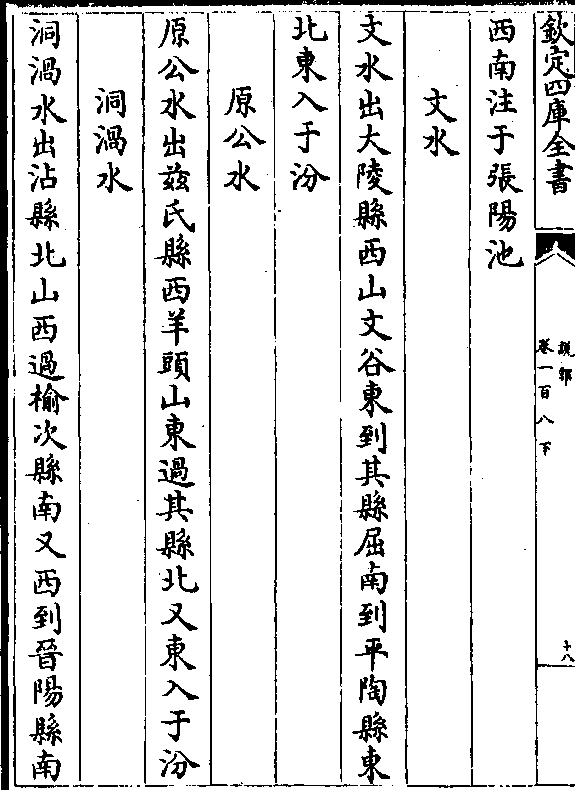 欽定四庫全書
說郛
卷一百八下
十八
西南注于張陽池
文水
文水出大陵縣西山文谷東到其縣屈南到平陶縣東
北東入于汾
原公水
原公水出茲氏縣西羊頭山東過其縣北又東入于汾
洞渦水
洞渦水出沾縣北山西過榆次縣南又西到晉陽縣南